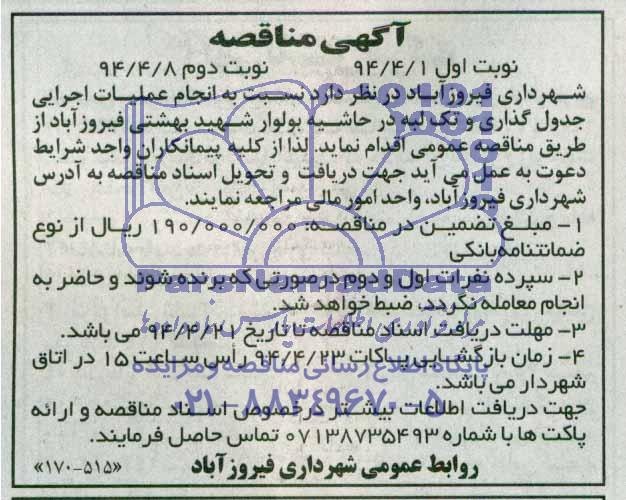 آگهی مناقصه
نوبت اول ۹۴/۴/۱ نوبت دوم ۹۴/۴/۸
شهرداری فیروزآباد در نظر دارد نسبت به انجام عملیات اجرایی
جدول گذاری و تک لبه در حاشیه بولوار شهید بهشتی فیروزآباد از
طریق مناقصه عمومی اقدام نماید. لذا از کلیه پیمانکاران واجد شرایط
دعوت به عمل می آید جهت دریافت و تحویل اسناد مناقصه به آدرس
شهرداری فیروزآباد، واحد امور مالی مراجعه نمایند.
۱- مبلغ تضمین در مناقصه: ۱۹۰/۰۰۰/۰۰۰ ریال از نوع
ضمانتنامه بانکی
۲- سپرده نفرات اول و دوم در صورتی که برنده شوند و حاضر به
انجام معامله نگردد، ضبط خواهد شد.
۳- مهلت دریافت اسناد مناقصه تا تاریخ ۹۴/۴/۲۱ می باشد.
۴- زمان بازگشایی پاکات ۹۴/۴/۲۳ رأس ساعت ۱۵ در اتاق
شهردار می باشد.
پایگاه اطلاع رسانی مناقصه و مزایده
جهت دریافت اطلاعات بیشتر در خصوص اسناد مناقصه و ارائه
۰۲۱-۸۸۳۴۹۶۷۰-۵
پاکت ها با شماره ۰۷۱۳۸۷۳۵۴۹۳ تماس حاصل فرمایند.
روابط عمومی شهرداری فیروزآباد «۵۱۵-۱۷۰»